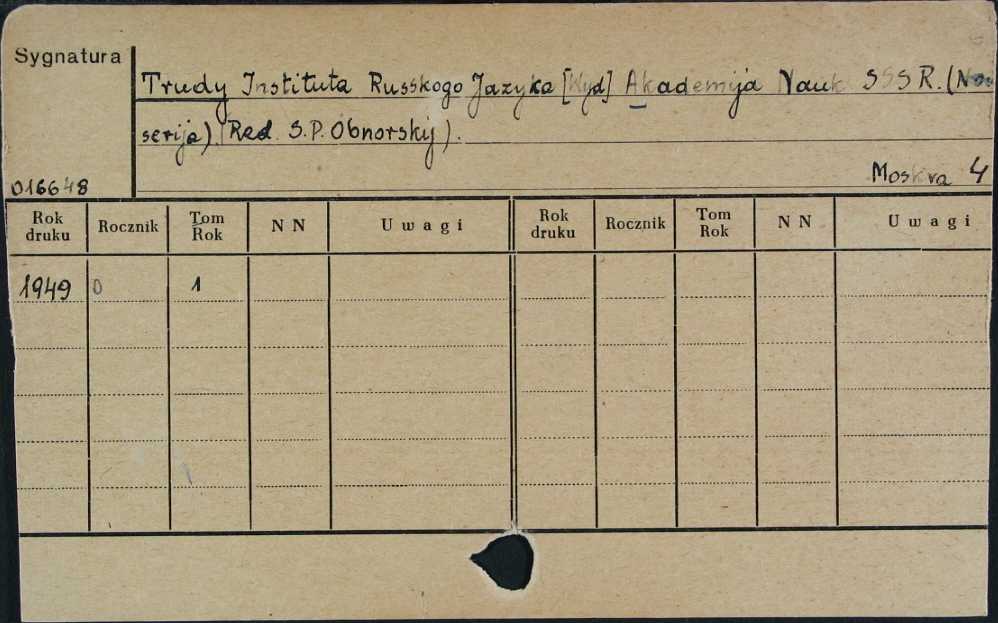 Sygnatura
Trudy Instituta Russkogo Jazyka [Wyd] Akademija Nauk SSSR. (
serija). (Red. S.P. Obnorskij).
016648
Moskva 4
Rok druku Rocznik Tom Rok N N Uwagi Rok druku Rocznik Tom Rok N N Uwagi
1949 0 1